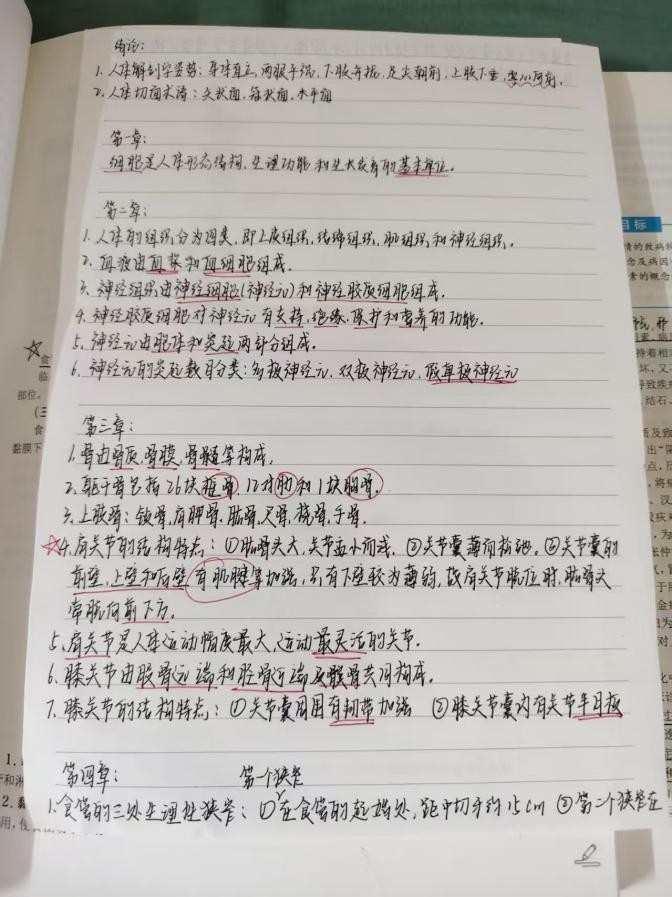 绪论:
1. 人体解剖学姿势: 身体直立, 两眼平视, 下肢并拢, 足尖朝前, 上肢下垂, 掌心向前.
2. 人体切面术语: 矢状面, 冠状面, 水平面
第一章:
细胞是人体形态结构、生理功能和生长发育的基本单位.
第二章:
1. 人体的组织分为四类, 即上皮组织, 结缔组织, 肌组织和神经组织.
2. 血液由血浆和血细胞组成.
3. 神经组织由神经细胞(神经元)和神经胶质细胞组成.
4. 神经胶质细胞对神经元有支持, 绝缘, 保护和营养的功能.
5. 神经元由胞体和突起两部分组成.
6. 神经元的突起数目分类: 多极神经元, 双极神经元, 假单极神经元
第三章:
1. 骨由骨质, 骨膜, 骨髓等构成.
2. 躯干骨包括26块椎骨, 12对肋和1块胸骨.
3. 上肢骨: 锁骨, 肩胛骨, 肱骨, 尺骨, 桡骨, 手骨.
☆4. 肩关节的结构特点: ①肱骨头大, 关节盂小而浅. ②关节囊薄而松弛. ③关节囊的
前壁, 上壁和后壁有肌腱等加强, 只有下壁较为薄弱, 故肩关节脱位时, 肱骨头
常脱向前下方.
5. 肩关节是人体运动幅度最大, 运动最灵活的关节.
6. 膝关节由股骨远端和胫骨近端及髌骨共同构成.
7. 膝关节的结构特点: ①关节囊周围有韧带加强 ②膝关节囊内有关节半月板
第四章: 第一个狭窄
1. 食管的三处生理性狭窄: ①在食管的起始处, 距中切牙约15cm ②第二个狭窄在
目标
部位.
黏膜下